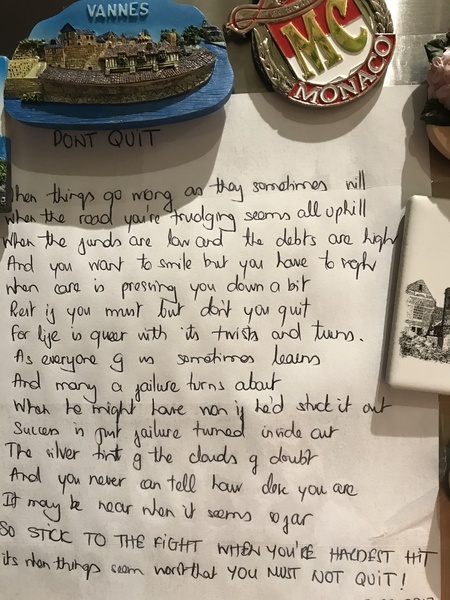 VANNES
MC
MONACO
DONT QUIT
When things go wrong as they sometimes will
when the road you're trudging seems all uphill
When the funds are low and the debts are high
And you want to smile but you have to sigh
when care is pressing you down a bit
Rest if you must but don't you quit
for life is queer with its twists and turns.
As everyone of us sometimes learns
And many a failure turns about
When he might have won if he'd stuck it out
Success is just failure turned inside out
The silver tint of the clouds of doubt
And you never can tell how close you are
It may be near when it seems so far
SO STICK TO THE FIGHT WHEN YOU'RE HARDEST HIT
its when things seem worst that YOU MUST NOT QUIT!